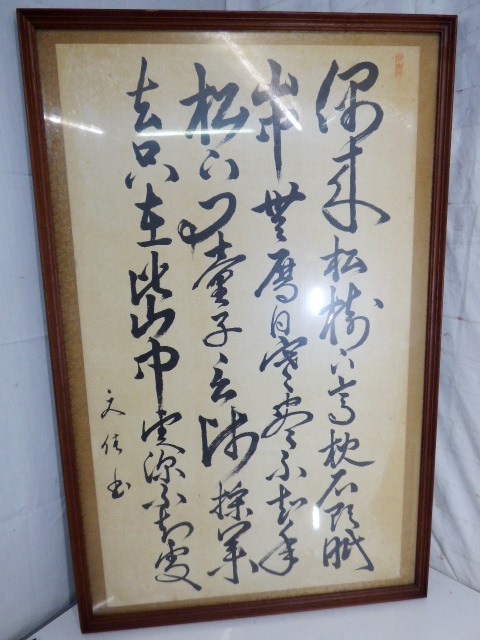 偶来松樹下高枕石頭眠
山中無曆日寒盡不知年
松下問童子言師採藥
去只在此山中雲深不知處
文 書